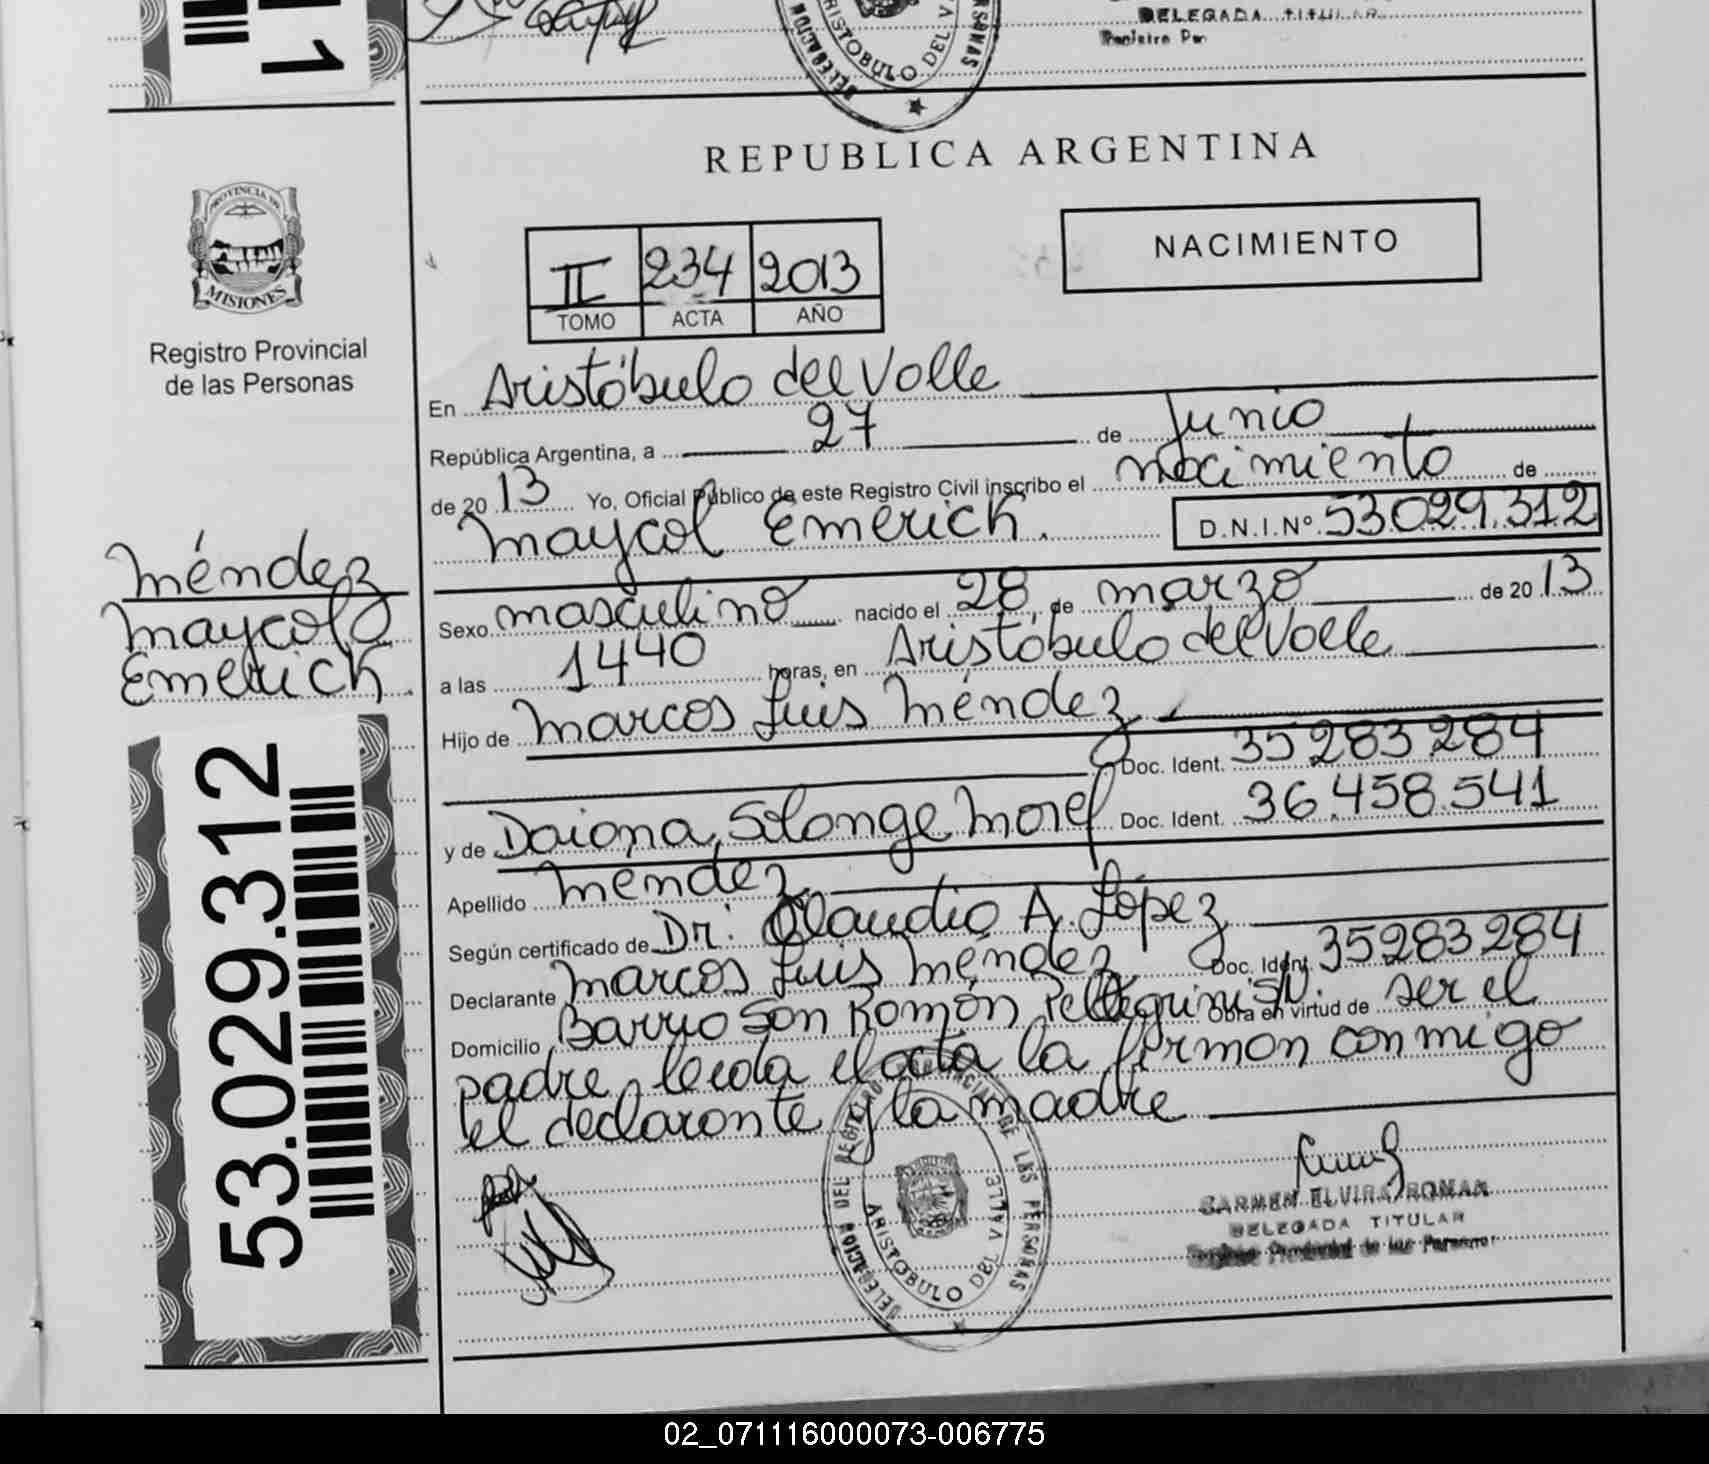 1
DELEGADA TITULAR
Registro
DELEGACION
ARISTOBULO DEL V
PERSONAS
REPUBLICA ARGENTINA
PROVINCIA DE
MISIONES
Registro Provincial
de las Personas
II 234 2013
TOMO ACTA AÑO
NACIMIENTO
En Aristóbulo del Valle
República Argentina, a 27 de Junio
de 2013 Yo, Oficial Público de este Registro Civil inscribo el nacimiento de
Maycol Emerick. D.N.I.Nº 53.029.312
Méndez
Maycol
Emerick.
Sexo masculino nacido el 28 de marzo de 2013
a las 1440 horas, en Aristóbulo del Valle
Hijo de Marcos Luis Méndez
Doc. Ident. 35283284
y de Daiana Solange Morel Doc. Ident. 36.458.541
Apellido Méndez
Según certificado de Dr. Claudio A. López
Declarante Marcos Luis Méndez Doc. Ident. 35283284
Domicilio Barrio San Ramón Pellegrini S/N. Obra en virtud de ser el
padre, leida el acta la firman conmigo
el declarante y la madre
53.029.312
DELEGACION DEL REGISTRO PROVINCIAL DE LAS PERSONAS
ARISTOBULO DEL VALLE
CARMEN ELVIRA ROMAN
DELEGADA TITULAR
Registro Provincial de las Personas
02_071116000073-006775